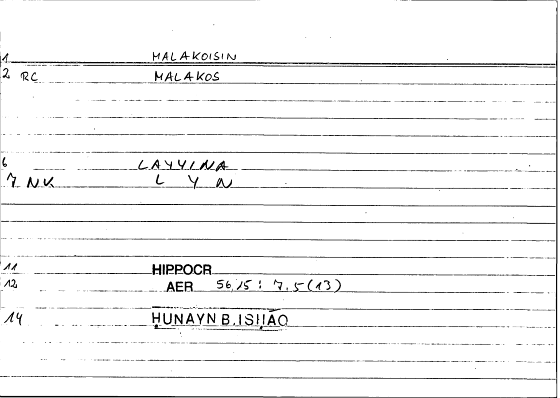 1 MALAKOISIN
2 RC MALAKOS
6 LAYYINA
7 NK L Y N
11 HIPPOCR
12 AER 56,15: 7.5(13)
14 ḤUNAYN B.ISḤĀQ